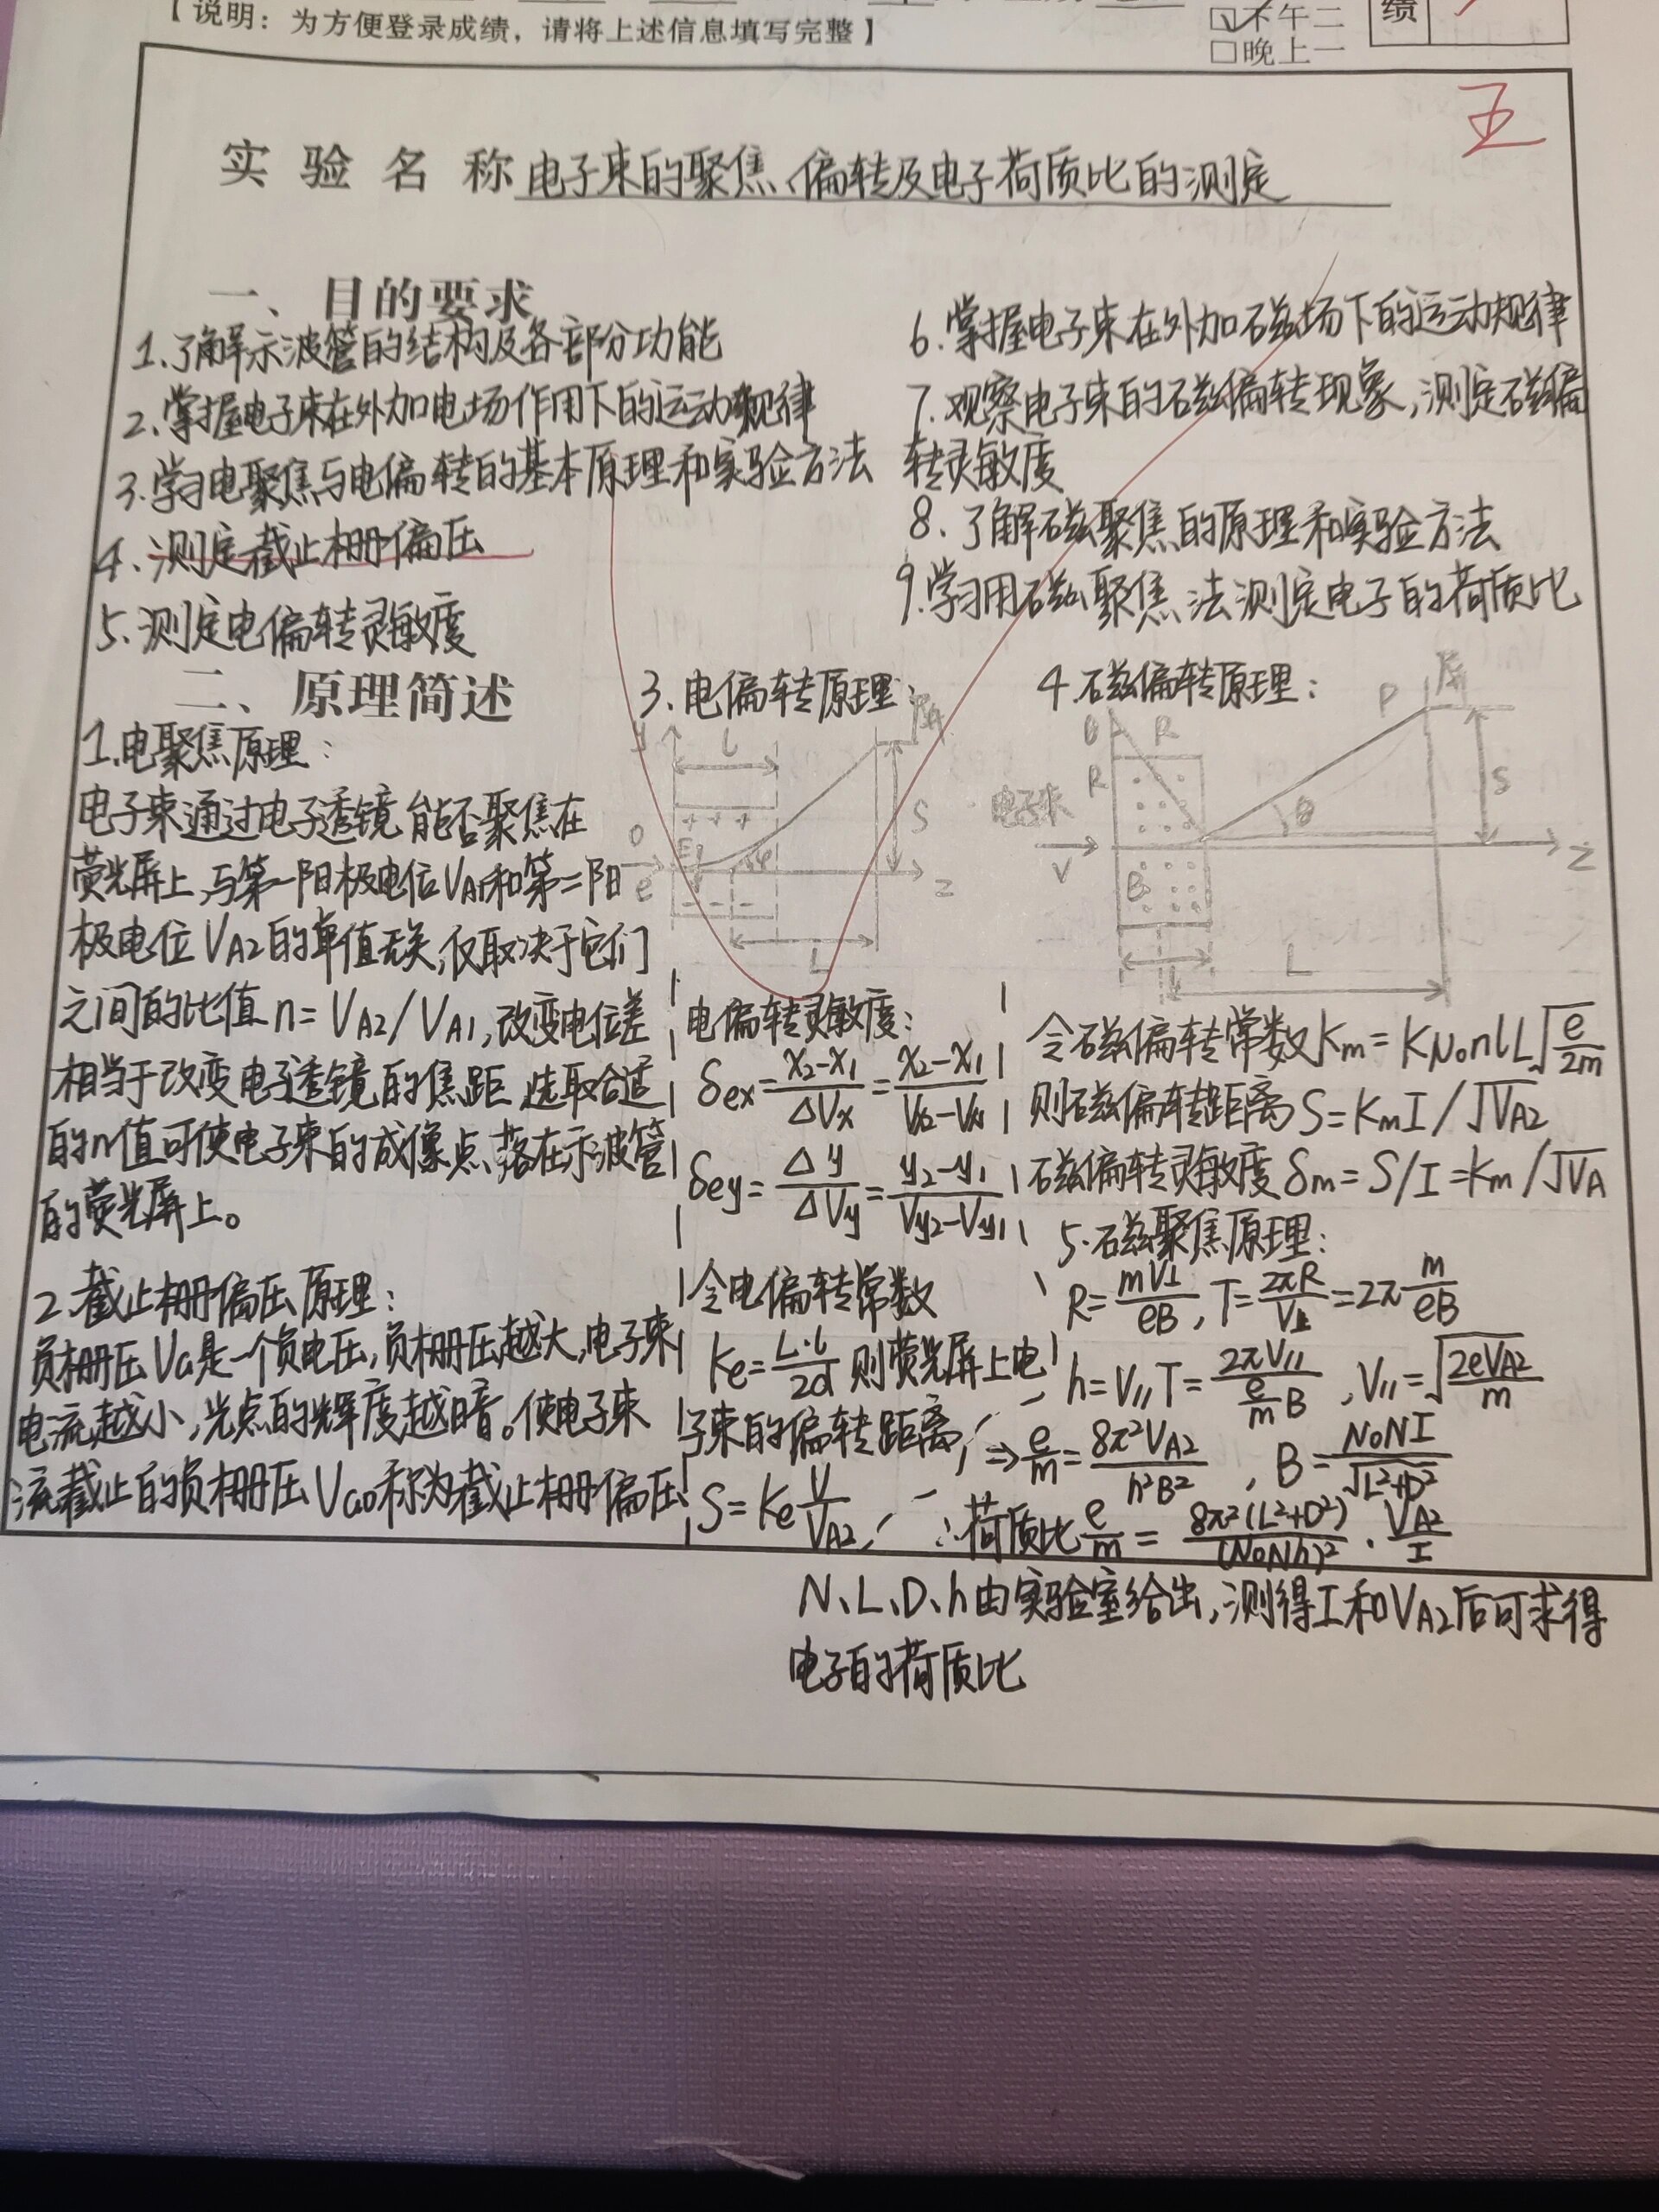 【说明：为方便登录成绩，请将上述信息填写完整】
下午二
□晚上一
绩
实验名称 电子束的聚焦、偏转及电子荷质比的测定
一、目的要求
1.了解示波管的结构及各部分功能
2.掌握电子束在外加电场作用下的运动规律
3.学习电聚焦与电偏转的基本原理和实验方法
4.测定截止栅偏压
5.测定电偏转灵敏度
6.掌握电子束在外加磁场下的运动规律
7.观察电子束的磁偏转现象,测定磁偏
转灵敏度
8.了解磁聚焦的原理和实验方法
9.学习用磁聚焦法测定电子的荷质比
二、原理简述
1.电聚焦原理:
电子束通过电子透镜能否聚焦在
荧光屏上,与第一阳极电位VA1和第二阳
极电位VA2的单值无关,仅取决于它们
之间的比值n=VA2/VA1,改变电位差
相当于改变电子透镜的焦距,选取合适
的n值可使电子束的成像点落在示波管
的荧光屏上。
2.截止栅偏压原理:
负栅压VG是一个负电压,负栅压越大,电子束
电流越小,光点的辉度越暗。使电子束
流截止的负栅压VG0称为截止栅偏压
3.电偏转原理:
y l 屏
+ + + S
O E φ
e z
- - -
L
电偏转灵敏度:
δex=(x2-x1)/ΔVx=(x2-x1)/(Vx2-Vx1)
δey=Δy/ΔVy=(y2-y1)/(Vy2-Vy1)
令电偏转常数
Ke=L·l/2d 则荧光屏上电
子束的偏转距离,
S=Ke V/VA2
4.磁偏转原理:
θ R P 屏
R S
电子束 θ
V z
B
l L
令磁偏转常数Km=Kμ0nlL√(e/2m)
则磁偏转距离S=KmI/√VA2
磁偏转灵敏度δm=S/I=Km/√VA
5.磁聚焦原理:
R=mV⊥/eB, T=2πR/V⊥=2π m/eB
h=V∥T=2πV∥/((e/m)B), V∥=√(2eVA2/m)
⇒e/m=8π²VA2/h²B², B=μ0NI/√(L²+D²)
∴荷质比e/m=8π²(L²+D²)/(μ0Nh)²·VA2/I
N、L、D、h由实验室给出,测得I和VA2后可求得
电子的荷质比